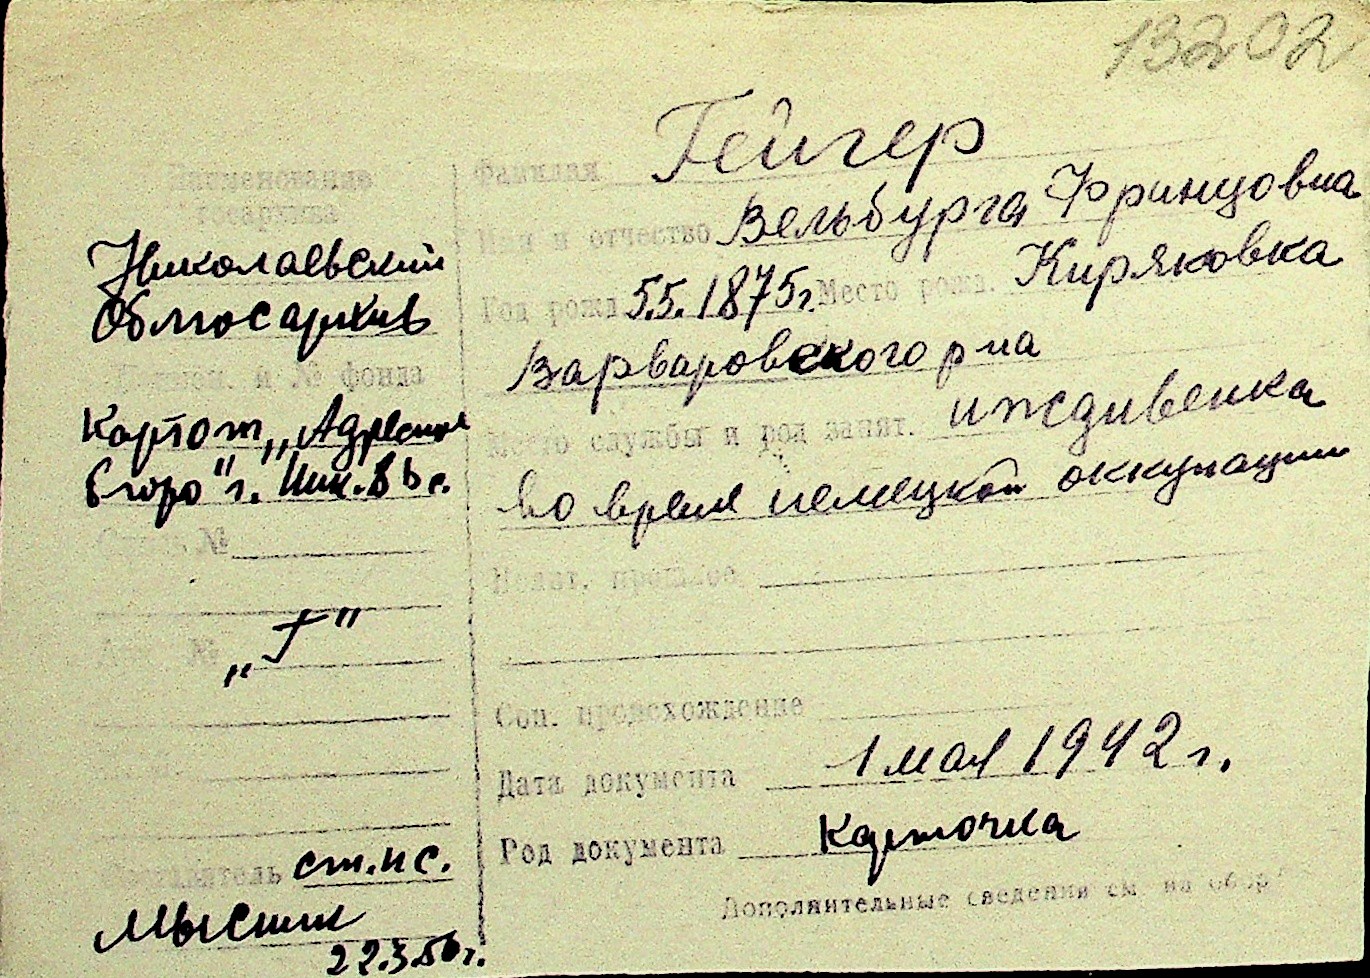 13202
Наименование
госархива
Николаевский
Облгосархив
№ фонда
Картот. „Адресное
бюро" г. Ник.
№
„Г"
№
Составитель ст. н с.
22.3.56г.
Фамилия Гейгер
Имя и отчество Вельбурга Францовна
Год рожд. 5.5.1875г. Место рожд. Киряковка
Варваровского р-на
Место службы и род занят. иждивенка
во время немецкой оккупации
Полит. прошлое
Соц. происхождение
Дата документа 1 мая 1942 г.
Род документа Карточка
Дополнительные сведения см. на обор.